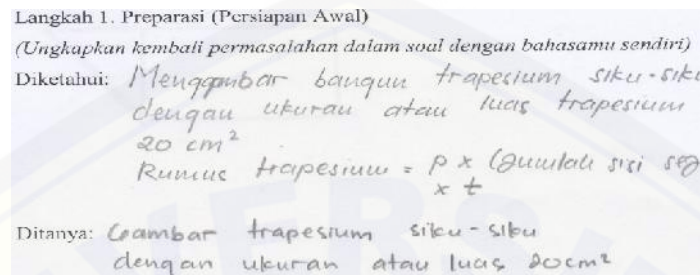 Langkah 1. Preparasi (Persiapan Awal)
(Ungkapkan kembali permasalahan dalam soal dengan bahasamu sendiri)
Diketahui: Menggambar bangun trapesium siku-siku
dengan ukuran atau luas trapesium
20 cm²
Rumus trapesium = p x (Jumlah sisi
x t
Ditanya: Gambar trapesium siku-siku
dengan ukuran atau luas 20cm²